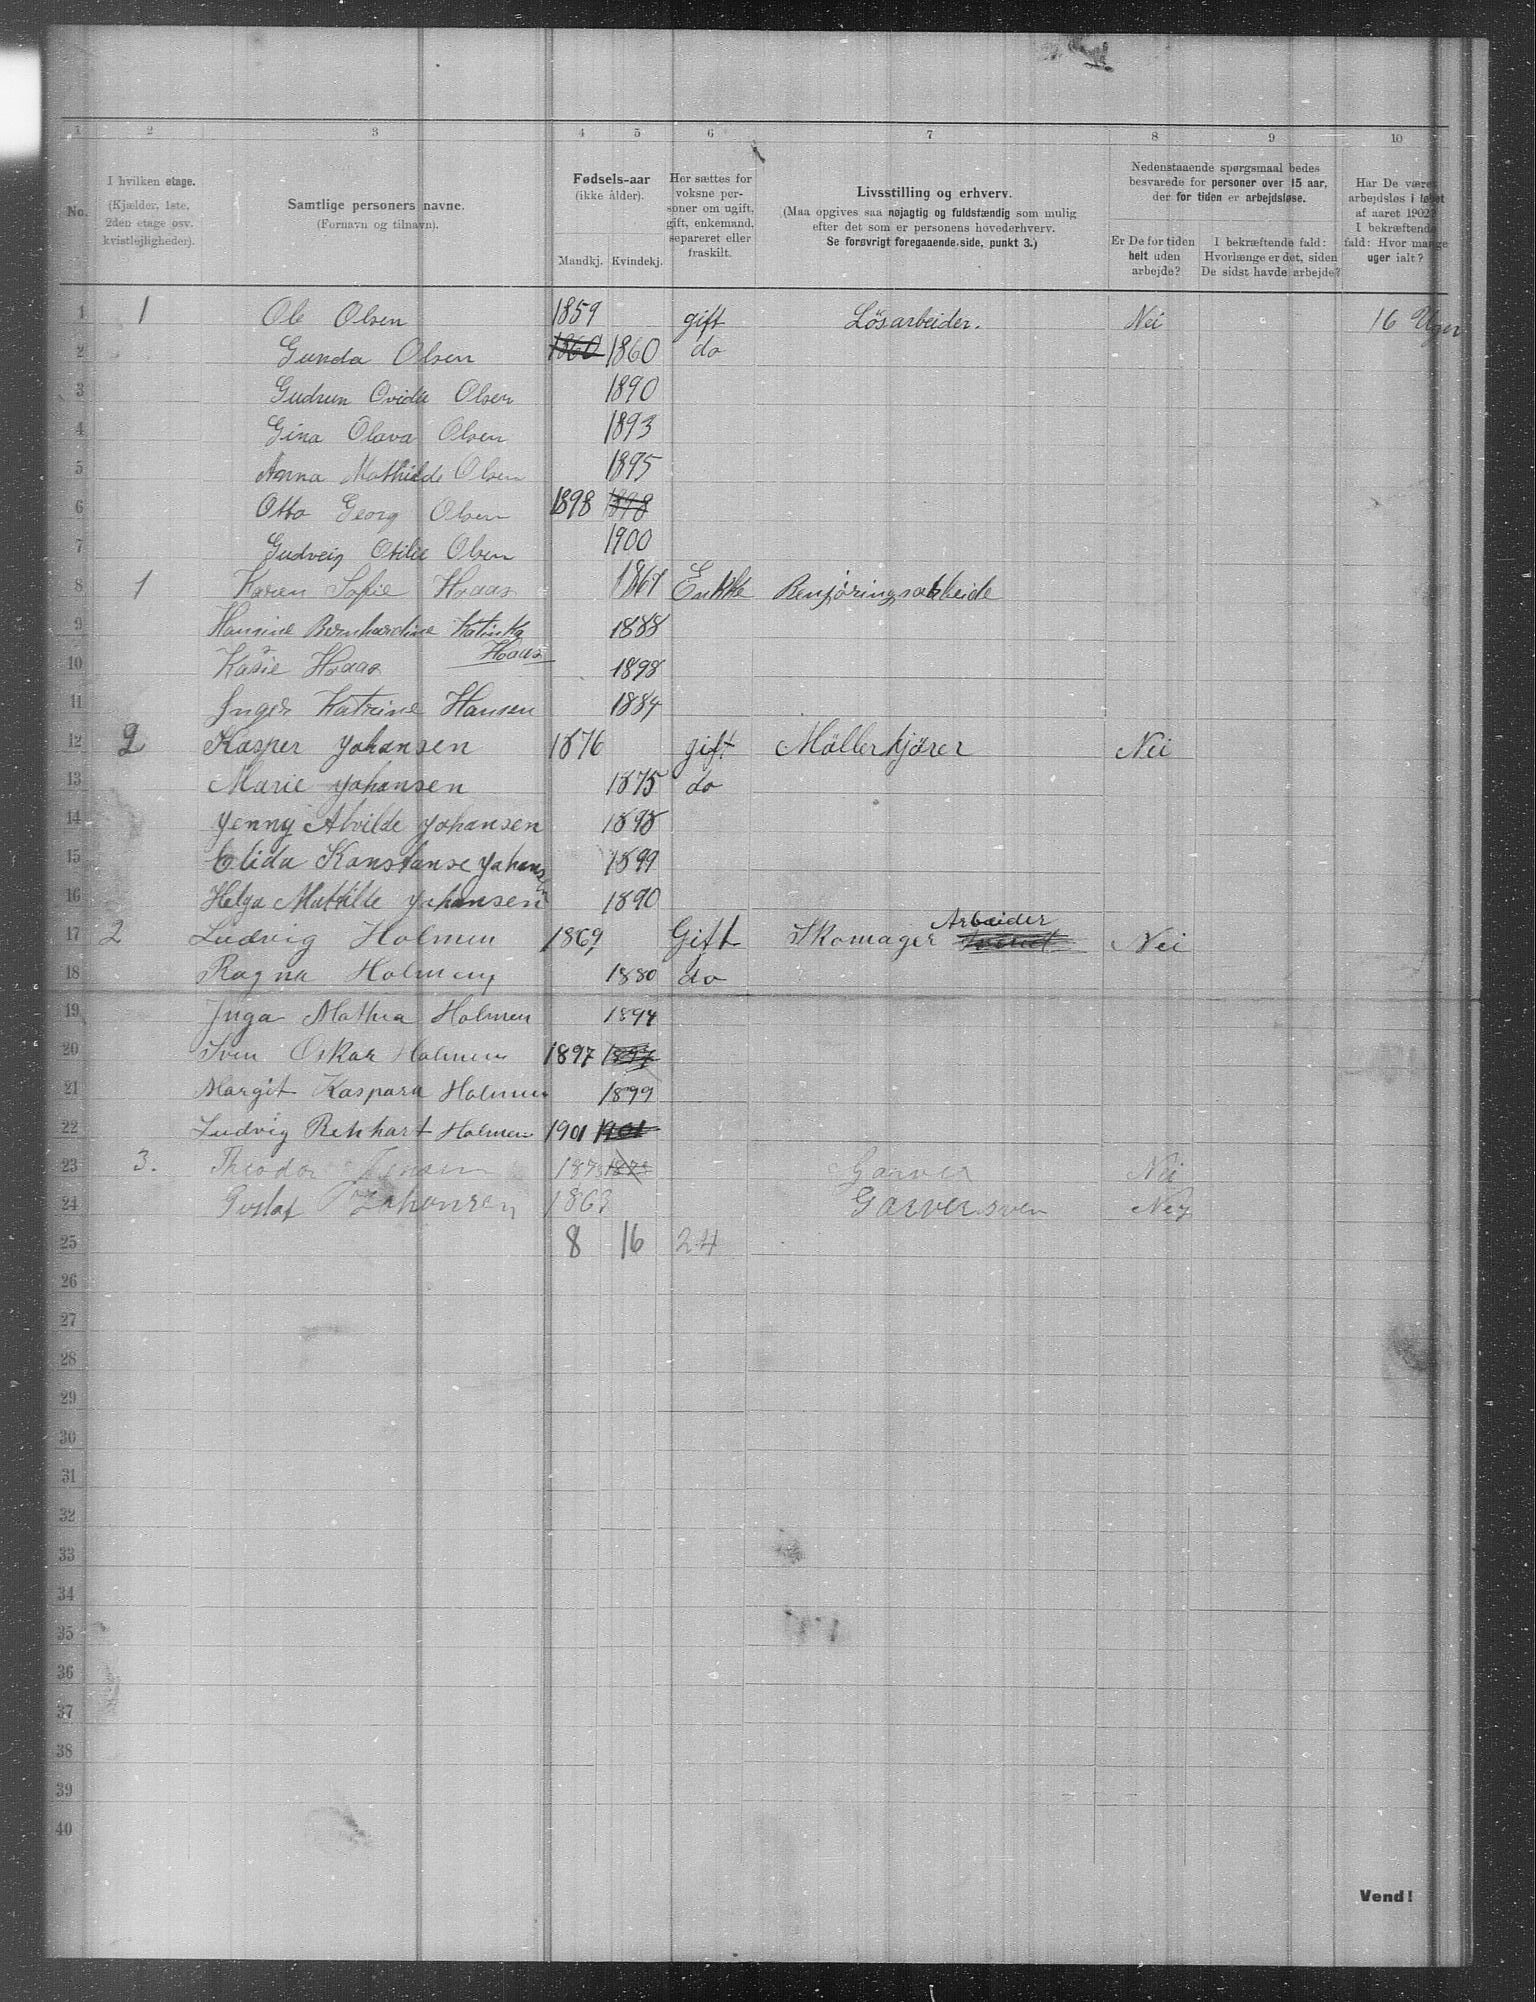 1 2 3 4 5 6 7 8 9 10
No.
I hvilken etage.
(Kjælder, 1ste,
2den etage osv.
kvistlejligheder).
Samtlige personers navne.
(Fornavn og tilnavn).
Fødsels-aar
(ikke alder).
Mandkj. Kvindekj.
Her sættes for
voksne per-
soner om ugift,
gift, enkemand,
separeret eller
fraskilt.
Livsstilling og erhverv.
(Maa opgives saa nøjagtig og fuldstændig som mulig
efter det som er personens hovederhverv.
Se forøvrigt foregaaende side, punkt 3.)
Nedenstaaende spørgsmaal bedes
besvarede for personer over 15 aar,
der for tiden er arbejdsløse.
Er De for tiden
helt uden
arbejde?
I bekræftende fald:
Hvorlænge er det, siden
De sidst havde arbejde?
Har De været
arbejdsløs i løbet
af aaret 1902?
I bekræftende
fald: Hvor mange
uger ialt?
1 1 Ole Olsen 1859 gift Løsarbeider. Nei 16 Uger
2 Gunda Olsen 1860 1860 do
3 Gudrun Ovida Olsen 1890
4 Gina Olava Olsen 1893
5 Anna Mathilde Olsen 1895
6 Otto Georg Olsen 1898 1898
7 Gudveig Otilie Olsen 1900
8 1 Karen Sofie Haas 1867 Enkke Renjøringsarbeide
9 Hansine Bernhardine Katinka
Haas 1888
10 Kasie Haas 1898
11 Inger Katrine Hansen 1884
12 2 Kasper Johansen 1876 gift Møllerkjører Nei
13 Marie Johansen 1875 do
14 Jenny Alvilde Johansen 1898
15 Elida Konstanse Johansen 1899
16 Helga Mathilde Johansen 1890
17 2 Ludvig Holmen 1869 Gift Skomager Arbeider Nei
18 Ragna Holmen 1880 do
19 Inga Mathea Holmen 1894
20 Sven Oskar Holmen 1897 1897
21 Margit Kaspara Holmen 1899
22 Ludvig Renhart Holmen 1901 1901
23 3. Theodor Jensen 1873 1873 Garver Nei
24 Gustaf Johansen 1863 Garversven Nej
25 8 16 24
26
27
28
29
30
31
32
33
34
35
36
37
38
39
40
Vend!